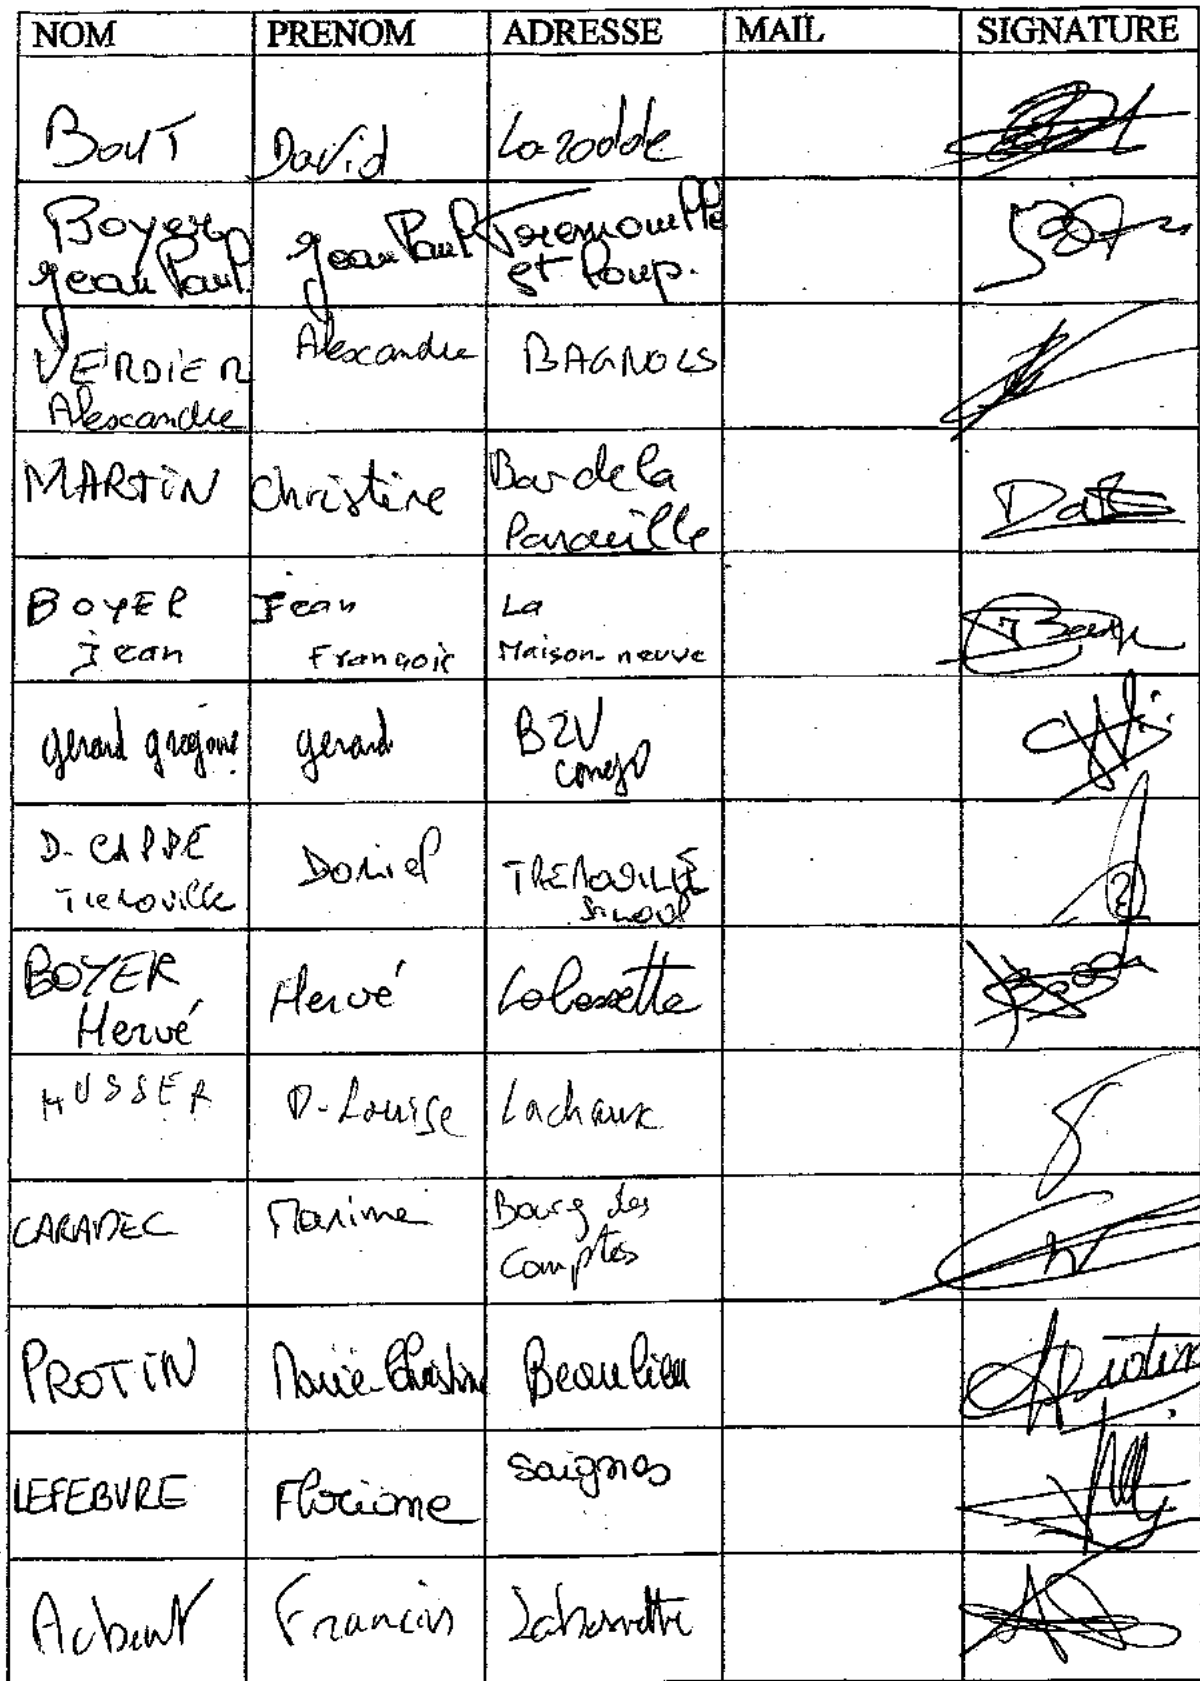 NOM PRENOM ADRESSE MAIL SIGNATURE
BOUT David Larodde
Boyer Jean Paul Jean Paul Tremouille et Loup.
VERDIER Alexandre Alexandre BAGNOLS
MARTIN Christine Bar de la
BOYER Jean Jean François La Maison-neuve
gerard gregoire gerard BZV congo
Daniel
BOYER Hervé Hervé
MUSSER Lachaux
CARADEC Maxime Bourg des Comptes
PROTIN Marie-Christine Beaulieu
LEFEBVRE Floriane saignes
Francis